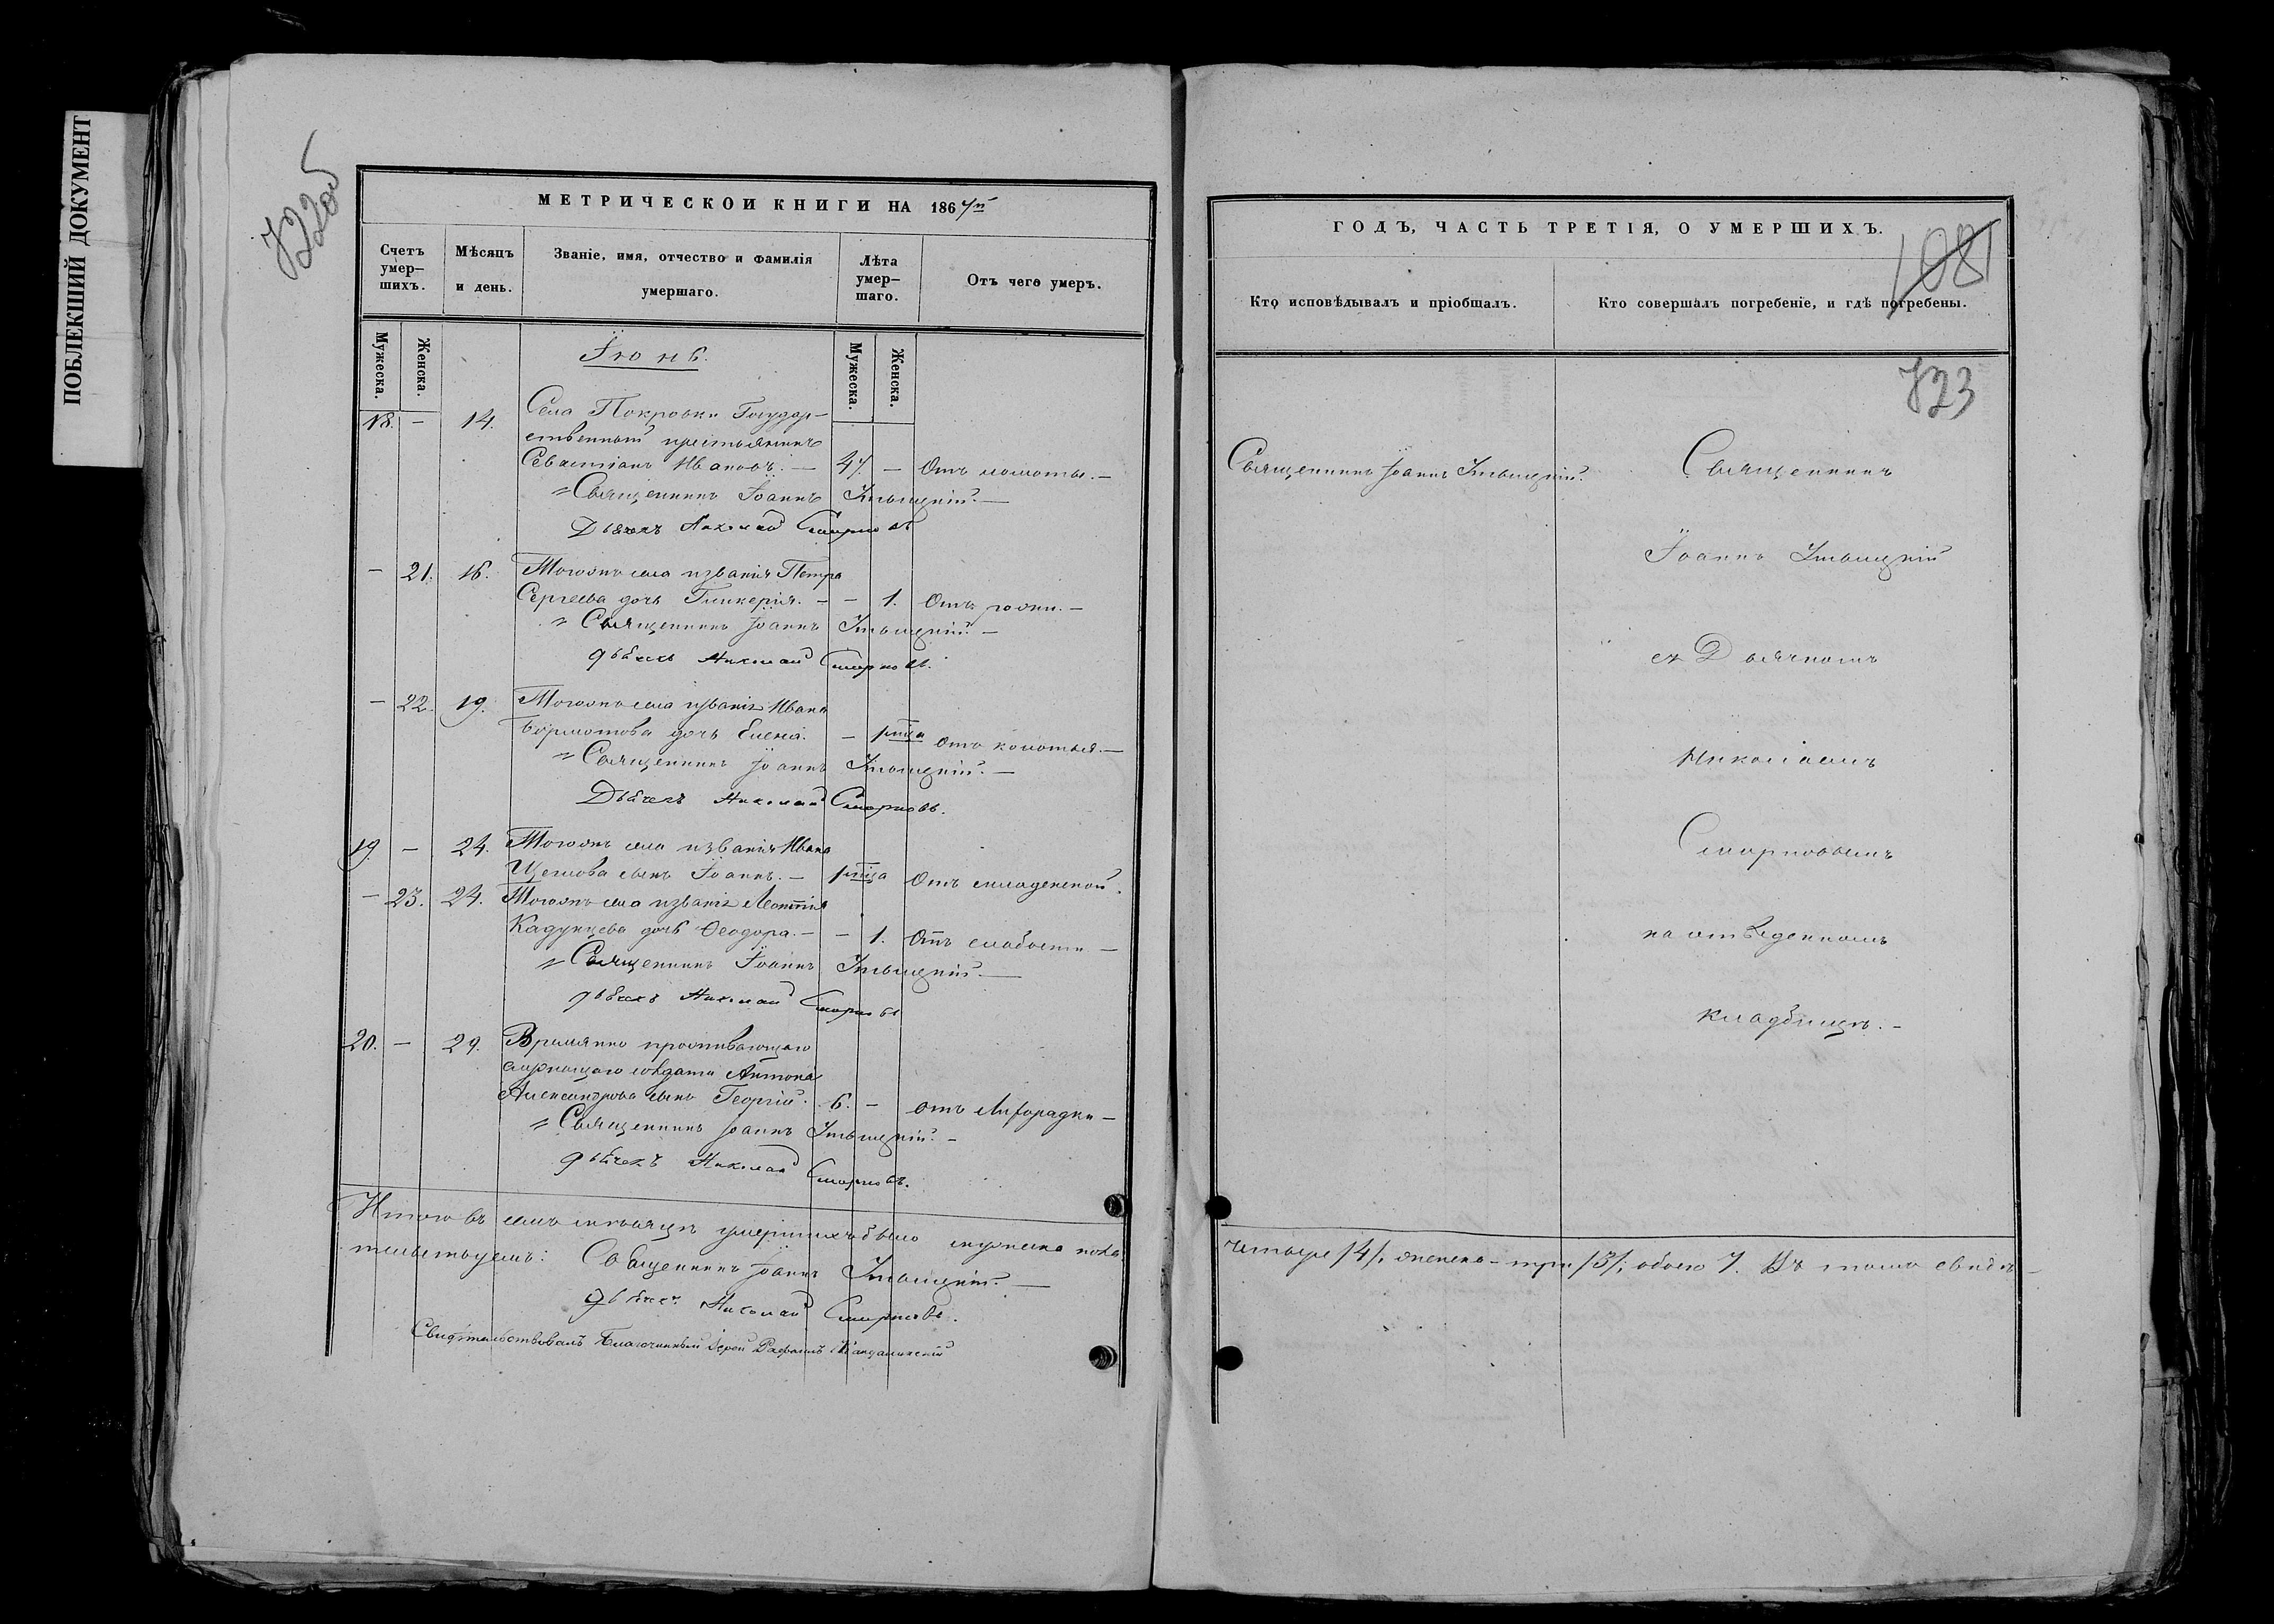 ПОБЛЕКШИЙ ДОКУМЕНТ
722об
МЕТРИЧЕСКОЙ КНИГИ НА 1867й
Счетъ умер-шихъ.
Мѣсяцъ и день.
Званіе, имя, отчество и фамилія умершаго.
Лѣта умер-шаго.
Отъ чего умеръ.
Мужеска.
Женска.
Мужеска.
Женска.
Іюнь.
18. — 14. Села Покровки Государ-
ственный крестьянинъ
Севастіанъ Ивановъ. — 47. — Отъ ломоты. —
Священникъ Іоаннъ Ильицкій. —
Дьячекъ Николай Смирновъ
— 21. 16. Тогожъ села и званія Петра
Сергеева дочь Гликерія. — — 1. Отъ
Священникъ Іоаннъ Ильицкій. —
Дьячекъ Николай Смирновъ.
— 22. 19. Тогожъ села и званія Ивана
Бурмотова дочь Елена. — Отъ колотья. —
Священникъ Іоаннъ Ильицкій. —
Дьячекъ Николай Смирновъ.
19. — 24. Тогожъ села и званія Ивана
Щеглова сынъ Іоаннъ. — Отъ младенской.
— 23. 24. Тогожъ села и званія Леонтія
Кадункова дочь Ѳеодора. — — 1. Отъ слабости —
Священникъ Іоаннъ Ильицкій. —
Дьячекъ Николай Смирновъ
20. — 29. Временно проживающаго
служащаго солдата Антона
Александрова сынъ Георгій. 6. — Отъ лихорадки —
Священникъ Іоаннъ Ильицкій. —
Дьячекъ Николай Смирновъ.
Итого въ семъ мѣсяцѣ умершихъ было мужеска пола
тельствуемъ: Священникъ Іоаннъ Ильицкій. —
Дьячекъ Николай Смирновъ.
Свидѣтельствовалъ Благочинный Іерей Рафаилъ
ГОДЪ, ЧАСТЬ ТРЕТІЯ, О УМЕРШИХЪ.
1081
Кто исповѣдывалъ и пріобщалъ.
Кто совершалъ погребеніе, и гдѣ погребены.
723
Священникъ Іоаннъ Ильицкій.
Священникъ
Іоаннъ Ильицкій
съ Дьячкомъ
Николаемъ
Смирновымъ
на отведенномъ
кладбищѣ. —
четыре /4/, женска — три /3/; обоего 7. Въ томъ свидѣ-